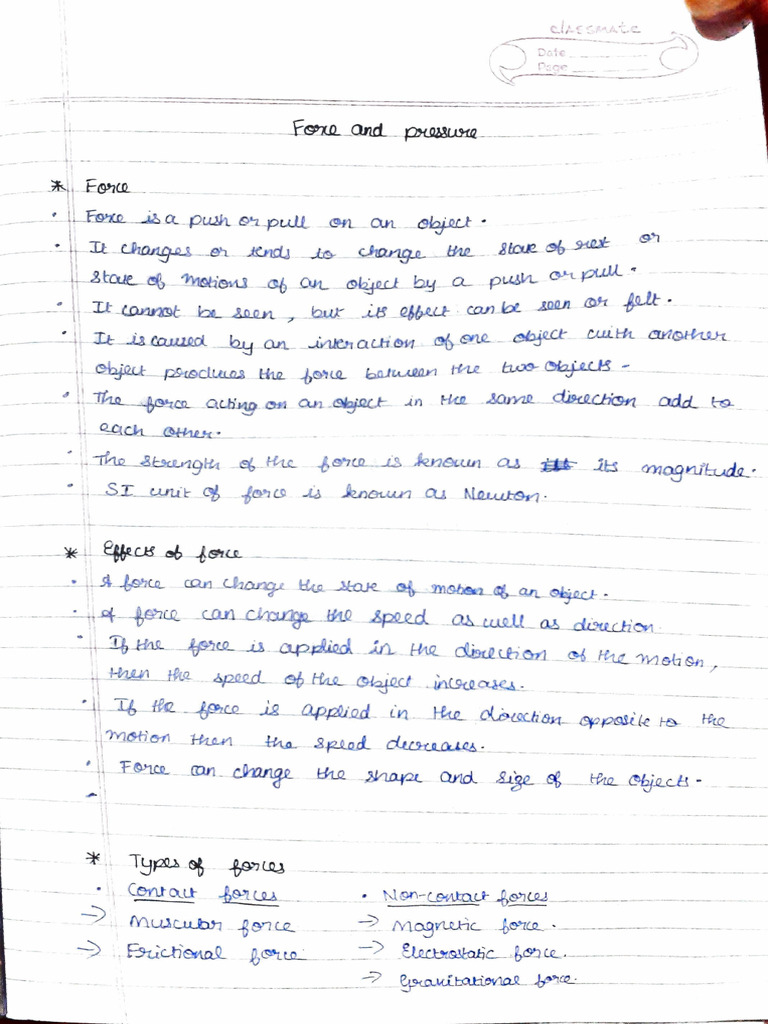 classmate
Date
Page
Force and pressure
* Force
• Force is a push or pull on an object.
• It changes or tends to change the state of rest or
state of motions of an object by a push or pull.
• It cannot be seen, but its effect can be seen or felt.
• It is caused by an interaction of one object with another
object produces the force between the two objects -
• The force acting on an object in the same direction add to
each other.
• The strength of the force is known as its magnitude.
• SI unit of force is known as Newton.
* Effects of force
• A force can change the state of motion of an object.
• A force can change the speed as well as direction.
• If the force is applied in the direction of the motion,
then the speed of the object increases.
• If the force is applied in the direction opposite to the
motion then the speed decreases.
• Force can change the shape and size of the objects -
-
* Types of forces
• Contact forces • Non-contact forces
→ Muscular force → Magnetic force.
→ Frictional force → Electrostatic force.
→ Gravitational force.